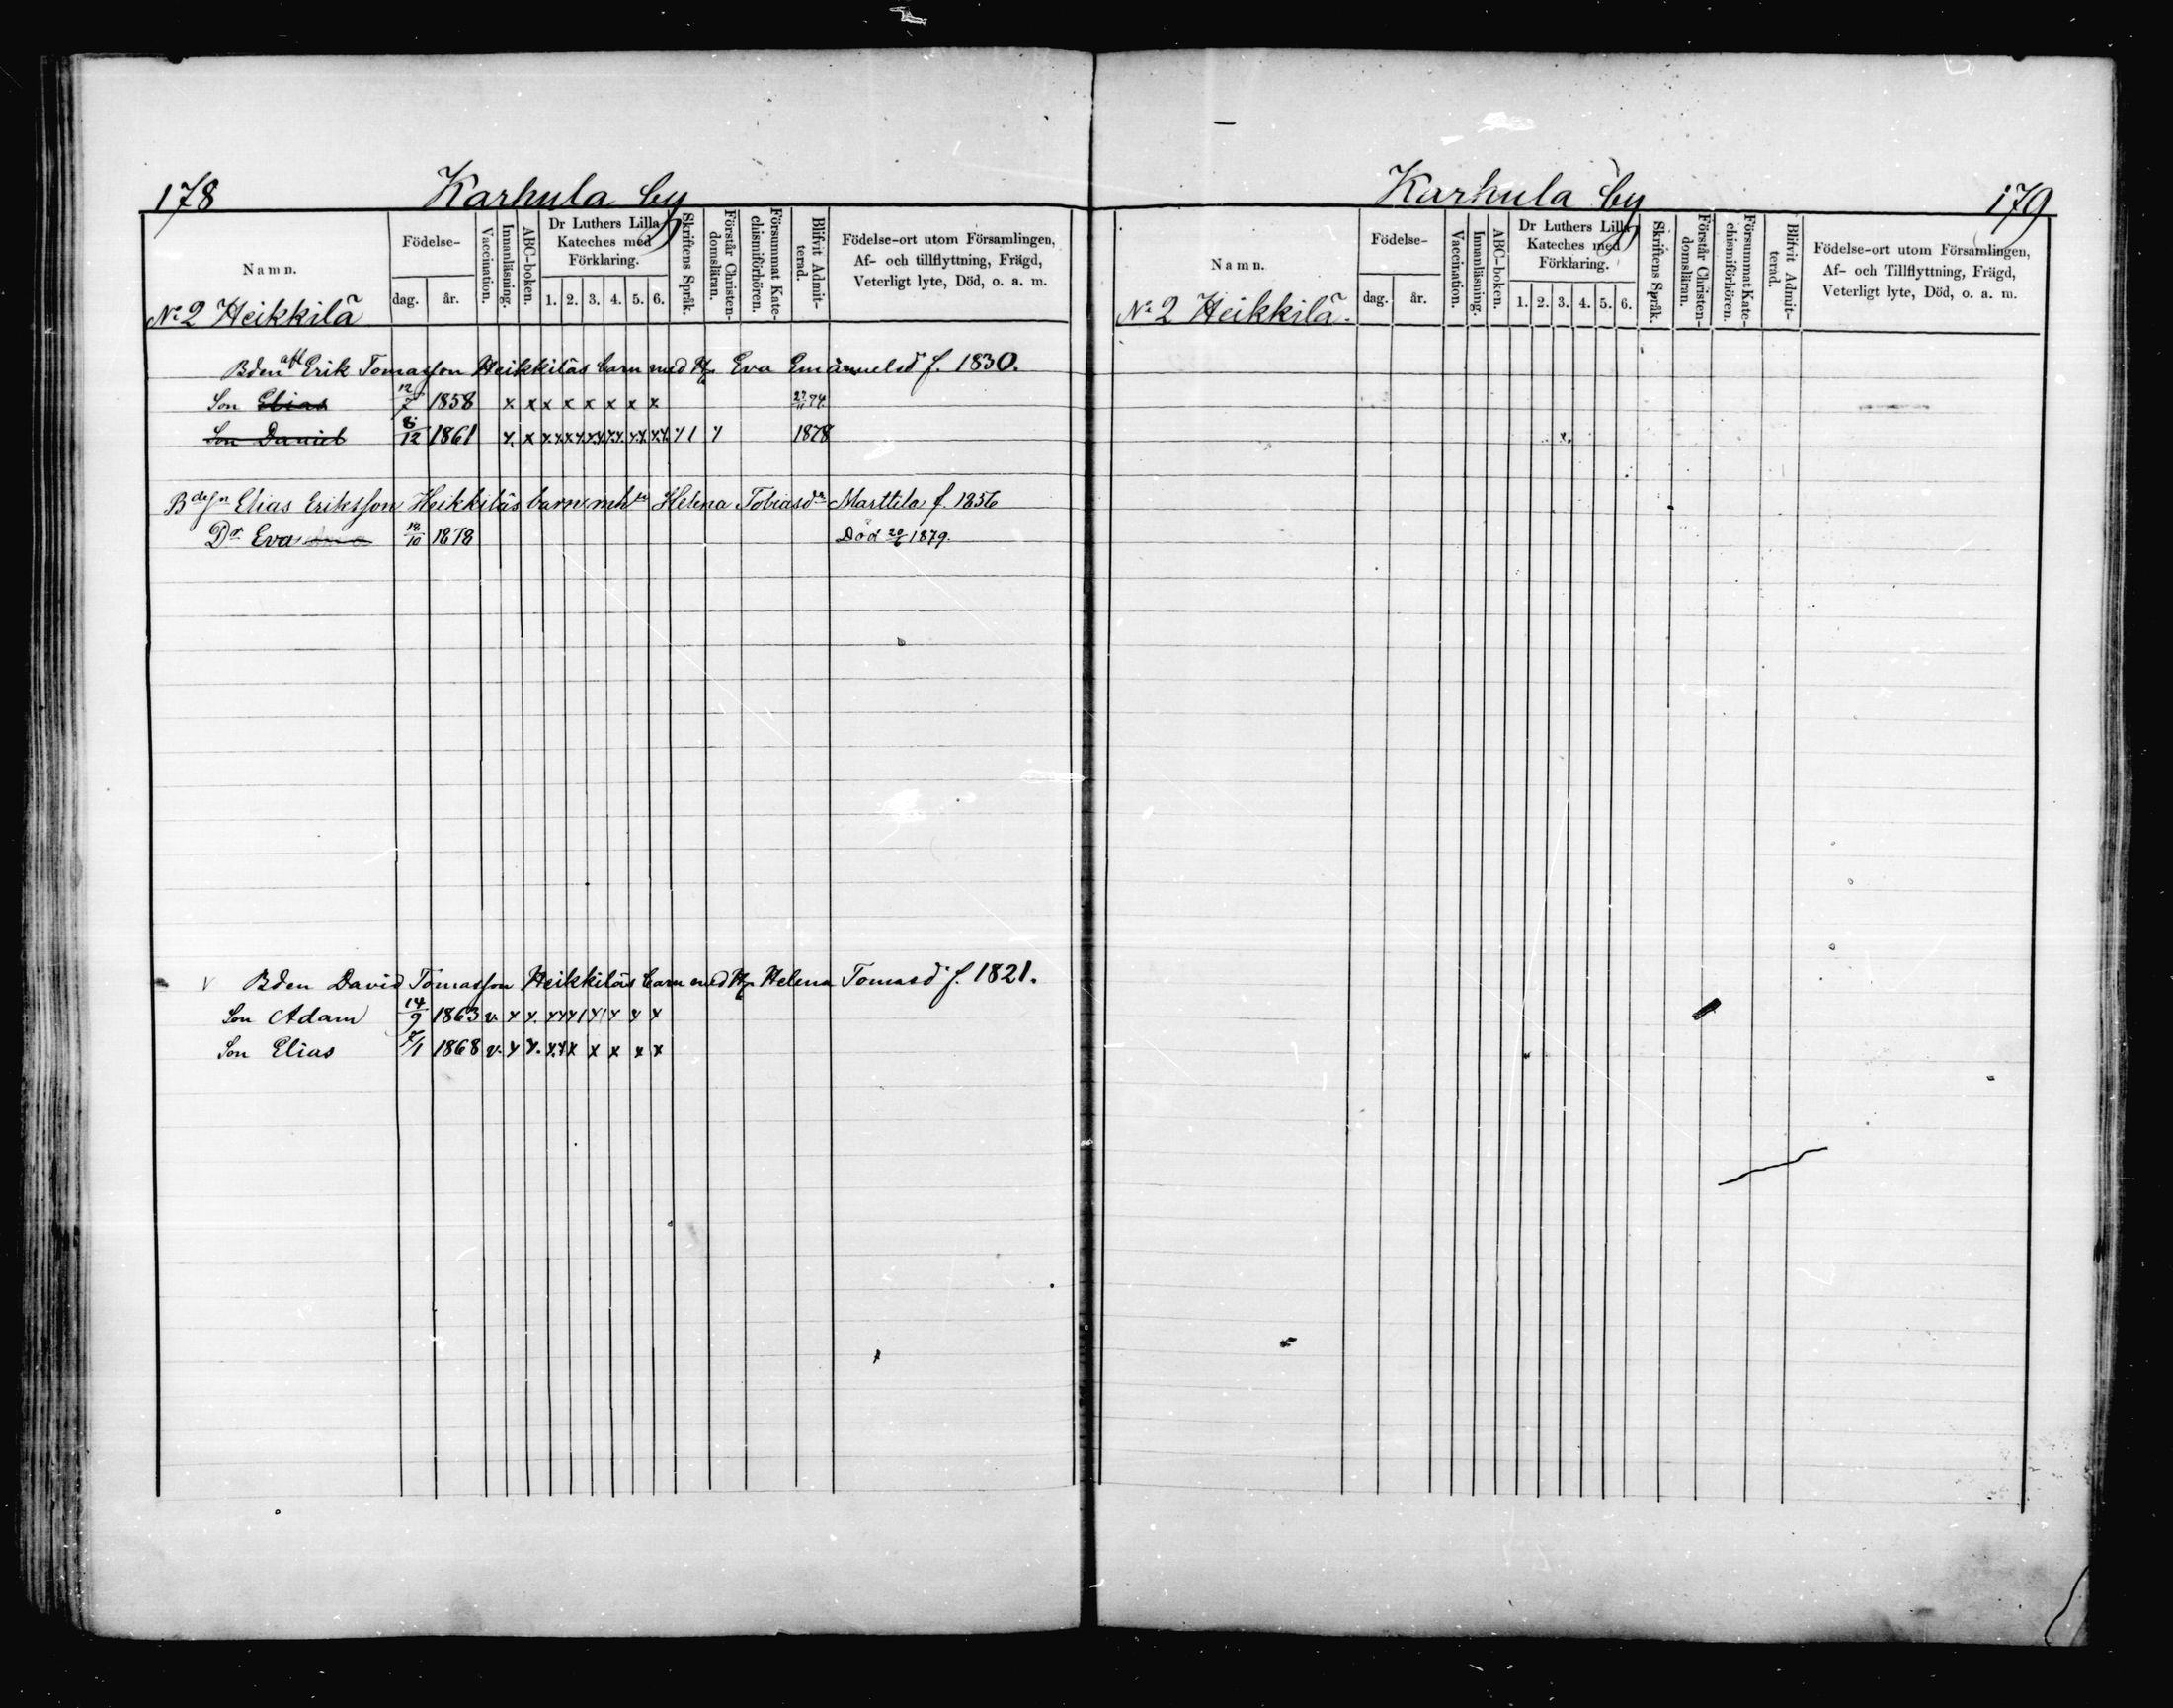 178 Karhula by
Namn. Födelse- dag. år. Vaccination. Innanläsning. ABC-boken. Dr Luthers Lilla Kateches med Förklaring. 1. 2. 3. 4. 5. 6. Skriftens Språk. Förstår Christendomsläran. Försummat Katechismiförhören. Blifvit Admitterad. Födelse-ort utom Församlingen, Af- och tillflyttning, Frägd, Veterligt lyte, Död, o. a. m.
No 2 Heikkilä
Bden afl Erik Tomasson Heikkiläs barn med H. Eva Emanuelsd f. 1830.
Son Elias 12/7 1858 x x x x x x x x
Son Daniel 8/12 1861 1878
Bdesn Elias Eriksson Heikkiläs barn mh Helena Tobiasdr Marttila f. 1856
Dr Eva 18/10 1878 Död 20/6 1879.
v Bden David Tomasson Heikkiläs barn med H. Helena Tomasd f. 1821.
Son Adam 14/9 1863 v.
Son Elias 7/1 1868 v.
Karhula by 179
Namn. Födelse- dag. år. Vaccination. Innanläsning. ABC-boken. Dr Luthers Lilla Kateches med Förklaring. 1. 2. 3. 4. 5. 6. Skriftens Språk. Förstår Christendomsläran. Försummat Katechismiförhören. Blifvit Admitterad. Födelse-ort utom Församlingen, Af- och Tillflyttning, Frägd, Veterligt lyte, Död, o. a. m.
No 2 Heikkilä.